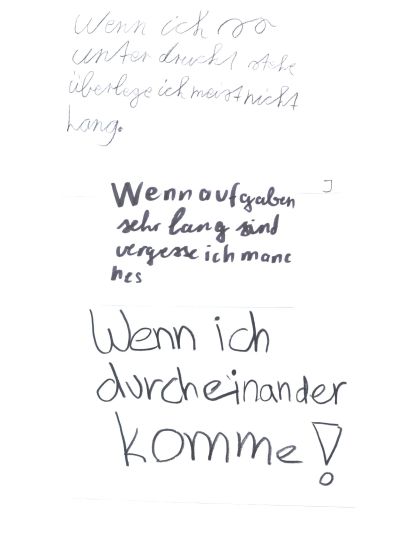 Wenn ich so
unter druckt stehe
überlege ich meist nicht
Lang.
Wenn aufgaben
sehr lang sind
vergesse ich manc
hes
Wenn ich
durcheinander
komme!